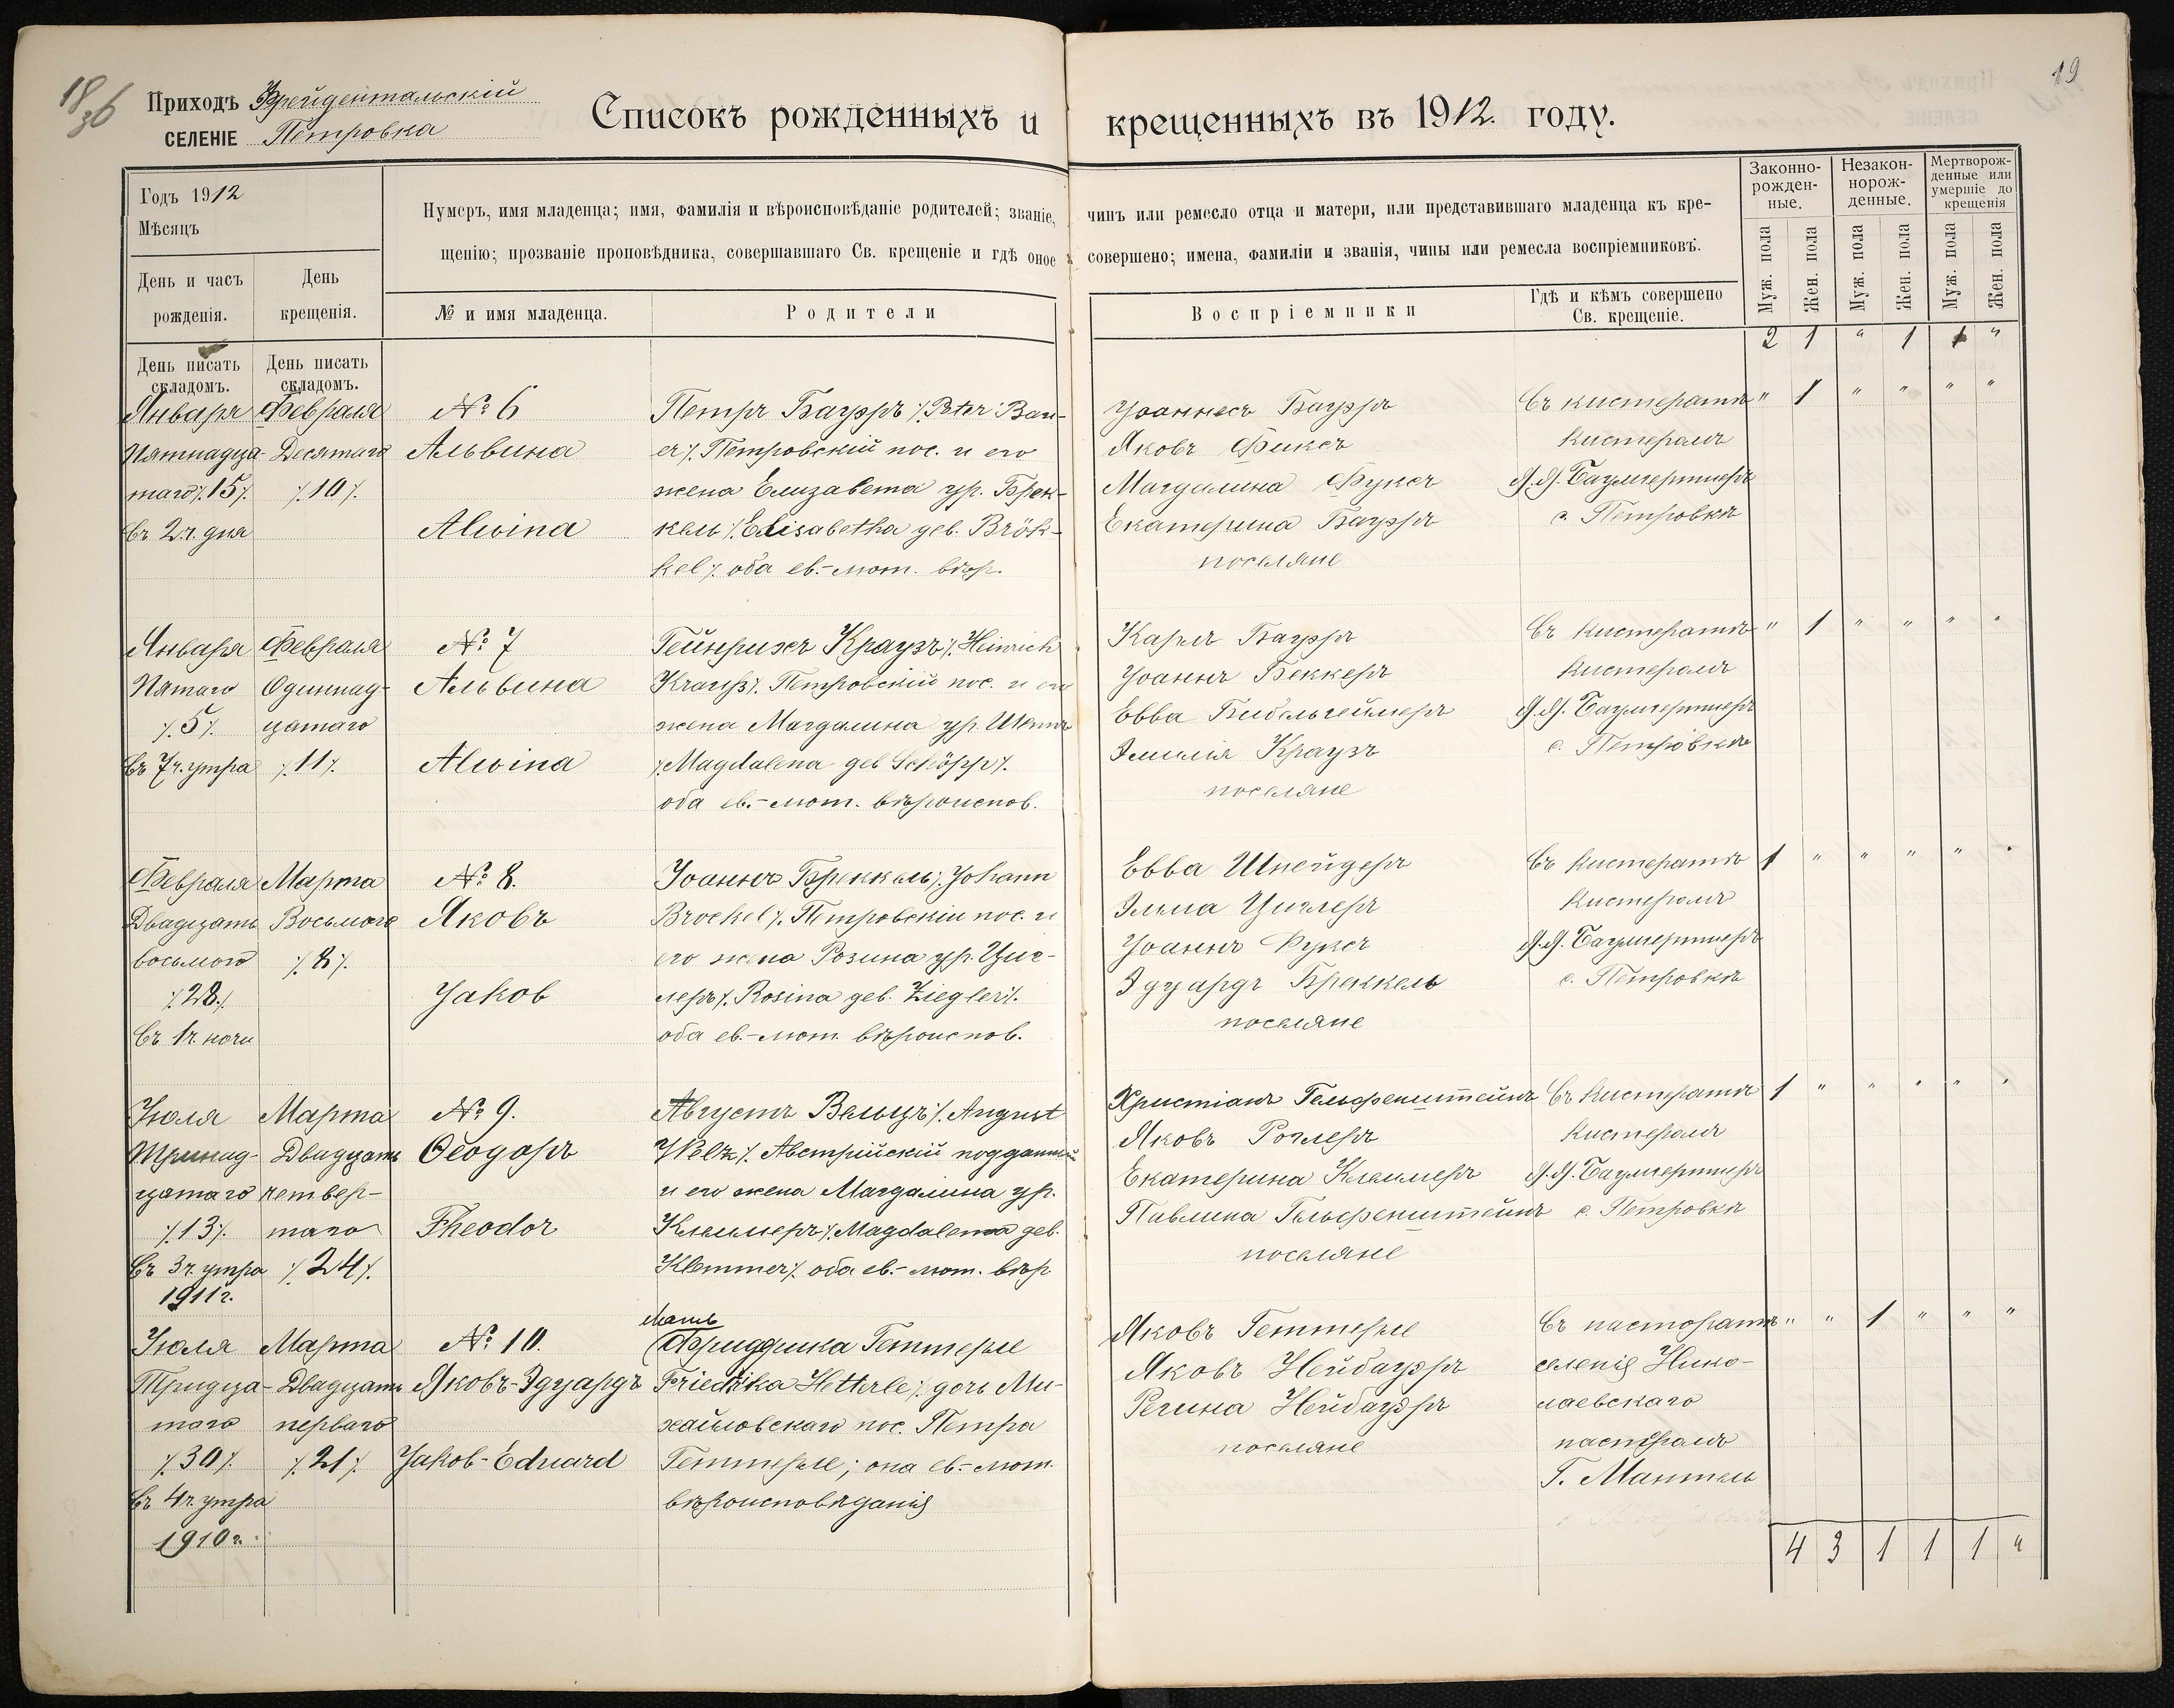 18
36
Приходъ Фрейдентальскій
СЕЛЕНІЕ Петровка
Списокъ рожденныхъ и
крещенныхъ въ 1912. году.
19
Годъ 1912
Мѣсяцъ
День и часъ рожденія.
День крещенія.
Нумеръ, имя младенца; имя, фамилія и вѣроисповѣданіе родителей; званіе, чинъ или ремесло отца и матери, или представившаго младенца къ кре-
щенію; прозваніе проповѣдника, совершавшаго Св. крещеніе и гдѣ оное совершено; имена, фамиліи и званія, чины или ремесла воспріемниковъ.
№ и имя младенца.
Родители
Воспріемники
Гдѣ и кѣмъ совершено
Св. крещеніе.
Законно-
рожден-
ные.
Незакон-
норож-
денные.
Мертворож-
денные или
умершіе до
крещенія
Муж. пола
Жен. пола
Муж. пола
Жен. пола
Муж. пола
Жен. пола
2 1 " 1 1 "
День писать
складомъ.
День писать
складомъ.
Января
Пятнадца-
таго ٪15٪.
въ 2 ч. дня
Февраля
Десятаго
٪10٪.
№ 6
Альвина
Alwina
Петръ Бауэръ ٪Peter Bau-
er٪. Петровскій пос. и его
жена Елизавета ур. Брек-
кель ٪Elisabetha geb. Brök-
kel٪. оба ев.-лют. вѣр.
Іоаннесъ Бауэръ
Яковъ Фиксъ
Магдалина Фуксъ
Екатерина Бауэръ
поселяне
Въ кистератѣ
кистеромъ
Я.Я. Баумгертнеръ
с. Петровка
" 1 " " " "
Января
Пятаго
٪5٪.
въ 7 ч. утра
Февраля
Одиннад-
цатаго
٪11٪.
№ 7
Альвина
Alwina
Гейнрихъ Краузъ ٪Heinrich
Krauß٪. Петровскій пос. и его
жена Магдалина ур. Шеппъ
٪Magdalena geb Schöpp٪.
оба ев.-лют. вѣроиспов.
Карлъ Бауэръ
Іоаннъ Беккеръ
Евва Бибельгеймеръ
Эмилія Краузъ
поселяне
Въ кистератѣ
кистеромъ
Я.Я. Баумгертнеръ
с. Петровка
" 1 " " " "
Февраля
Двадцать
восьмого
٪28٪.
въ 1 ч. ночи
Марта
Восьмого
٪8٪.
№ 8.
Яковъ
Jakob
Іоаннъ Бреккель ٪Johann
Brockel٪. Петровскій пос. и
его жена Розина ур. Циг-
леръ ٪Rosina geb. Ziegler٪.
оба ев.-лют. вѣроиспов.
Евва Шнейдеръ
Эльма Циглеръ
Іоаннъ Фуксъ
Эдуардъ Бреккель
поселяне
Въ кистератѣ
кистеромъ
Я.Я. Баумгертнеръ
с. Петровка
1 " " " " "
Іюля
Тринад-
цатаго
٪13٪.
въ 3 ч. утра
1911 г.
Марта
Двадцать
четвер-
таго
٪24٪.
№ 9.
Ѳеодоръ
Theodor
Августъ Вельцъ ٪August
Welz٪. Австрійскій подданный
и его жена Магдалина ур.
Клеммеръ ٪Magdalena geb.
Klemmer٪. оба ев.-лют. вѣр
Христіанъ Гельфенштейнъ
Яковъ Роглеръ
Екатерина Клеммеръ
Павлина Гельфенштейнъ
поселяне
Въ кистератѣ
кистеромъ
Я.Я. Баумгертнеръ
с. Петровка
1 " " " " "
Іюля
Тридца-
таго
٪30٪.
въ 4 ч. утра
1910 г.
Марта
Двадцать
перваго
٪21٪.
№ 10.
Яковъ-Эдуардъ
Jakob-Eduard
Мать
Фриддрика Геттерле
Friedrika Hetterle٪. дочь Ми-
хайловскаго пос. Петра
Геттерле; она ев.-лют.
вѣроисповѣданія
Яковъ Геттерле
Яковъ Нейбауэръ
Регина Нейбауэръ
поселяне
Въ пасторатѣ
селенія Нико-
лаевскаго
пасторомъ
Г. Мантель
" " 1 " " "
4 3 1 1 1 "